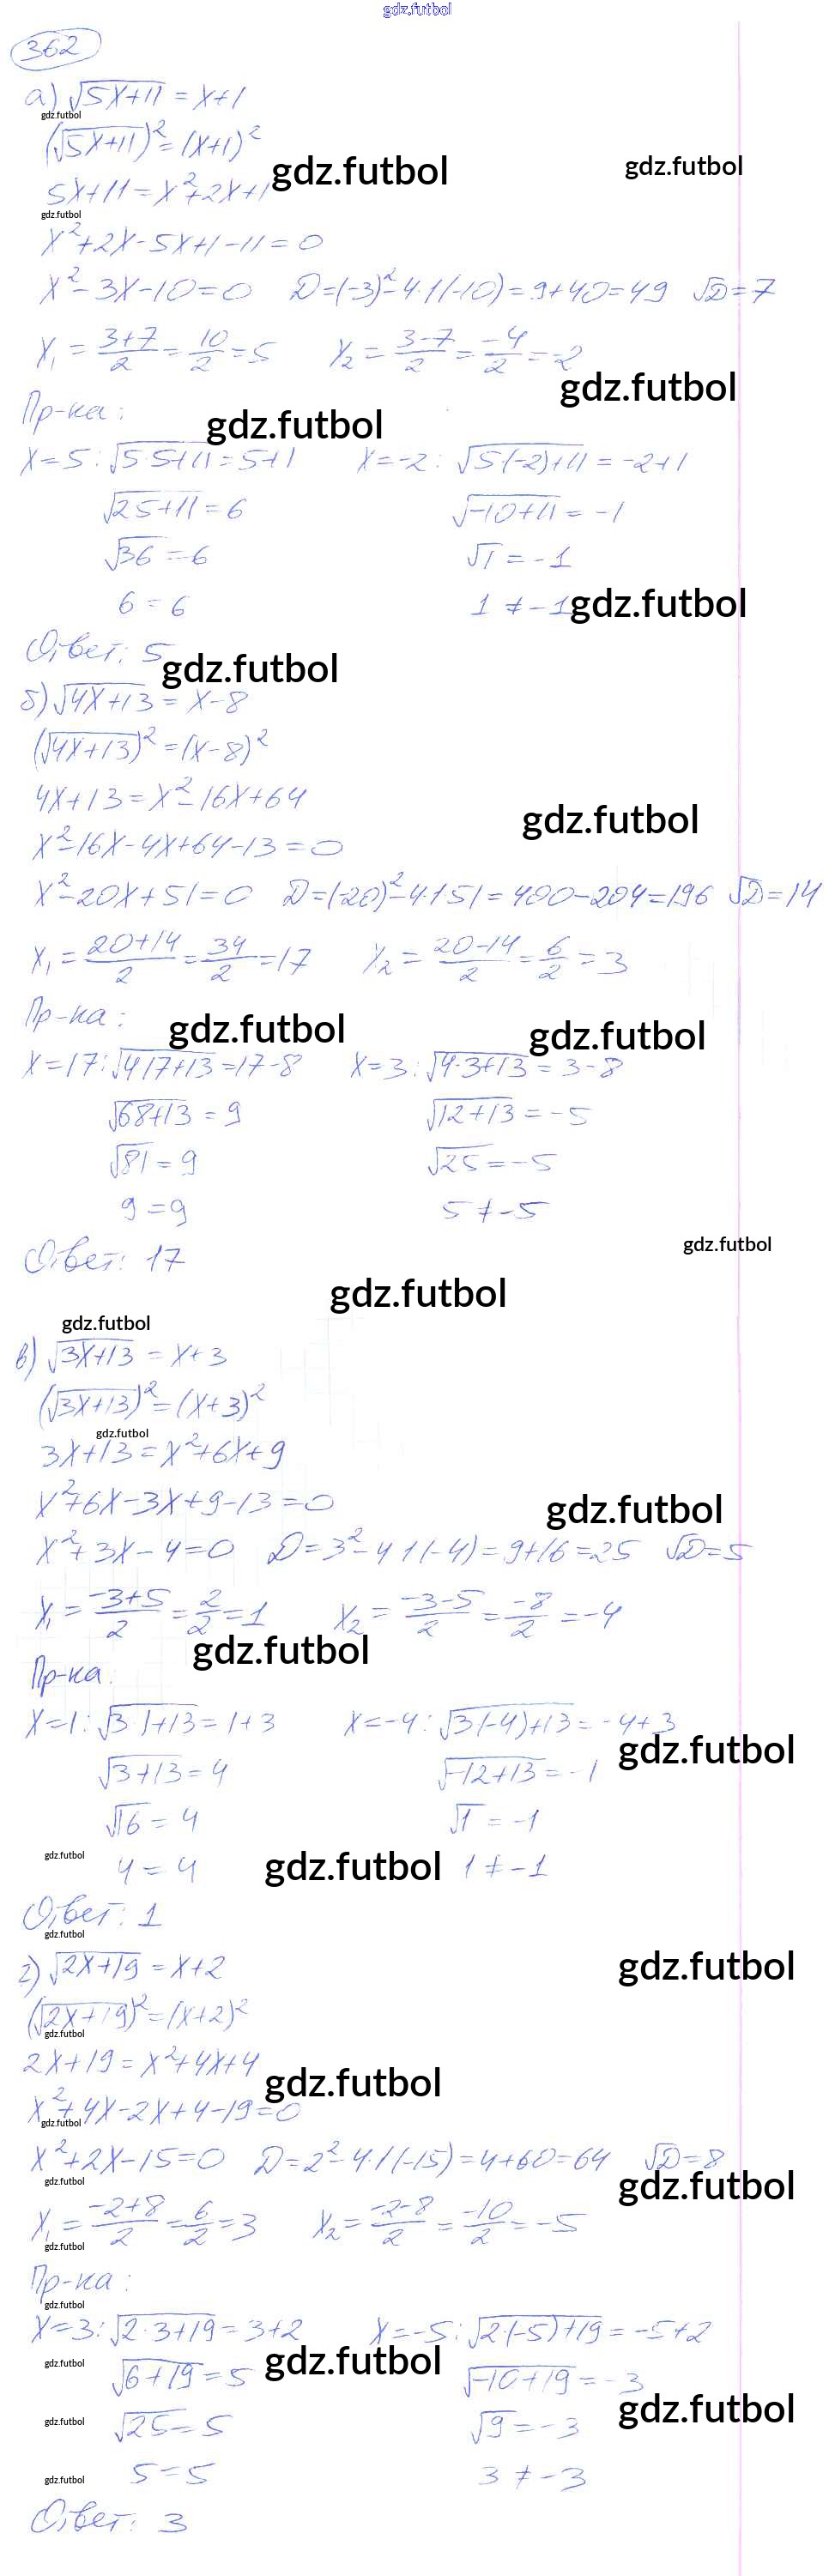 gdz.futbol
362
а) √5x+11 = x+1
gdz.futbol
(√5x+11)² = (x+1)²
gdz.futbol
gdz.futbol
5x+11 = x²+2x+1
gdz.futbol
x²+2x-5x+1-11 = 0
x²-3x-10=0 D=(-3)²-4·1(-10)=9+40=49 √D=7
x₁ = 3+7/2 = 10/2 = 5 x₂ = 3-7/2 = -4/2 = -2
gdz.futbol
Пр-ка:
gdz.futbol
x=5: √5·5+11 = 5+1 x=-2: √5(-2)+11 = -2+1
√25+11 = 6 √-10+11 = -1
√36 = 6 √1 = -1
6 = 6 1 ≠ -1
gdz.futbol
Ответ: 5
gdz.futbol
б) √4x+13 = x-8
(√4x+13)² = (x-8)²
4x+13 = x²-16x+64
gdz.futbol
x²-16x-4x+64-13 = 0
x²-20x+51=0 D=(-20)²-4·1·51=400-204=196 √D=14
x₁ = 20+14/2 = 34/2 = 17 x₂ = 20-14/2 = 6/2 = 3
Пр-ка:
gdz.futbol
gdz.futbol
x=17: √4·17+13 = 17-8 x=3: √4·3+13 = 3-8
√68+13 = 9 √12+13 = -5
√81 = 9 √25 = -5
9 = 9 5 ≠ -5
gdz.futbol
Ответ: 17
gdz.futbol
gdz.futbol
в) √3x+13 = x+3
(√3x+13)² = (x+3)²
gdz.futbol
3x+13 = x²+6x+9
x²+6x-3x+9-13 = 0
gdz.futbol
x²+3x-4=0 D=3²-4·1(-4)=9+16=25 √D=5
x₁ = -3+5/2 = 2/2 = 1 x₂ = -3-5/2 = -8/2 = -4
gdz.futbol
Пр-ка:
x=1: √3·1+13 = 1+3 x=-4: √3(-4)+13 = -4+3
gdz.futbol
√3+13 = 4 √-12+13 = -1
√16 = 4 √1 = -1
gdz.futbol
4 = 4 1 ≠ -1
gdz.futbol
Ответ: 1
gdz.futbol
г) √2x+19 = x+2
gdz.futbol
(√2x+19)² = (x+2)²
gdz.futbol
2x+19 = x²+4x+4
gdz.futbol
x²+4x-2x+4-19=0
gdz.futbol
x²+2x-15=0 D=2²-4·1(-15)=4+60=64 √D=8
gdz.futbol
gdz.futbol
x₁ = -2+8/2 = 6/2 = 3 x₂ = -2-8/2 = -10/2 = -5
gdz.futbol
Пр-ка:
gdz.futbol
x=3: √2·3+19 = 3+2 x=-5: √2·(-5)+19 = -5+2
gdz.futbol
gdz.futbol
√6+19 = 5 √-10+19 = -3
gdz.futbol
gdz.futbol
√25 = 5 √9 = -3
5 = 5 3 ≠ -3
gdz.futbol
Ответ: 3